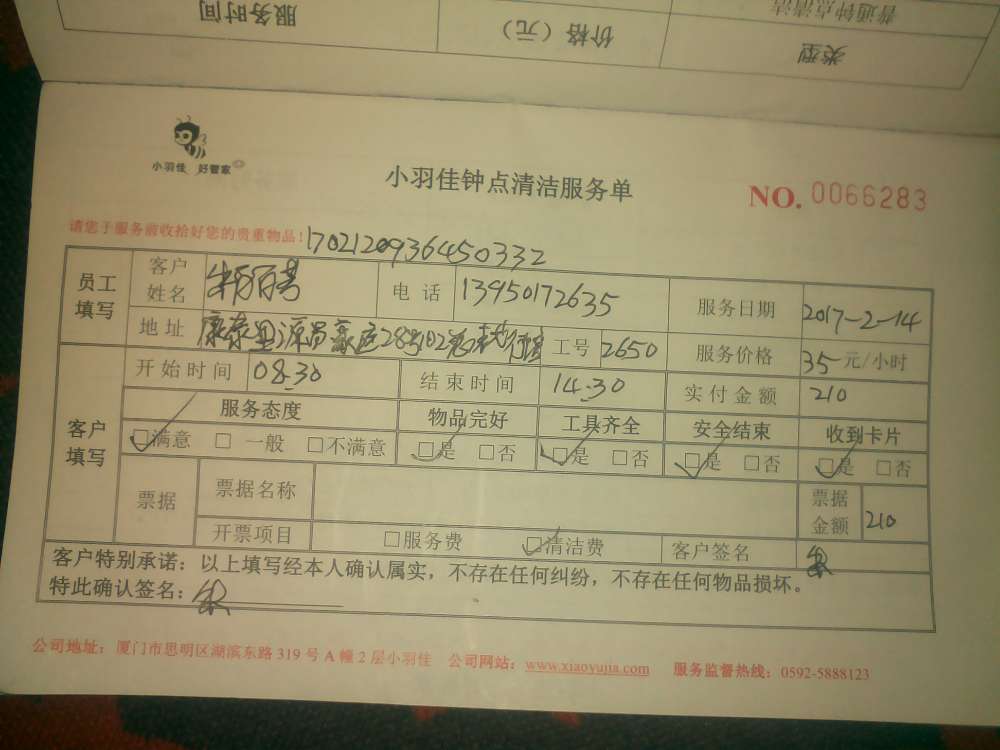 服务时间 价格（元） 类型
普通钟点清洁
小羽佳 好管家
小羽佳钟点清洁服务单
NO. 0066283
请您于服务前收拾好您的贵重物品！ 170212093645033２
员工填写 客户姓名 电话 13950172635 服务日期 2017-2-14
地址 康泰里源昌豪庭28号102 工号 2650 服务价格 35 元/小时
客户填写 开始时间 08.30 结束时间 14.30 实付金额 210
服务态度 物品完好 工具齐全 安全结束 收到卡片
☑满意 □ 一般 □不满意 ☑是 □否 ☑是 □否 ☑是 □否 ☑是 □否
票据 票据名称 票据金额 210
开票项目 □服务费 ☑清洁费 客户签名
客户特别承诺：以上填写经本人确认属实，不存在任何纠纷，不存在任何物品损坏。
特此确认签名：
公司地址：厦门市思明区湖滨东路 319 号 A 幢 2 层小羽佳 公司网站：www.xiaoyujia.com 服务监督热线：0592-5888123